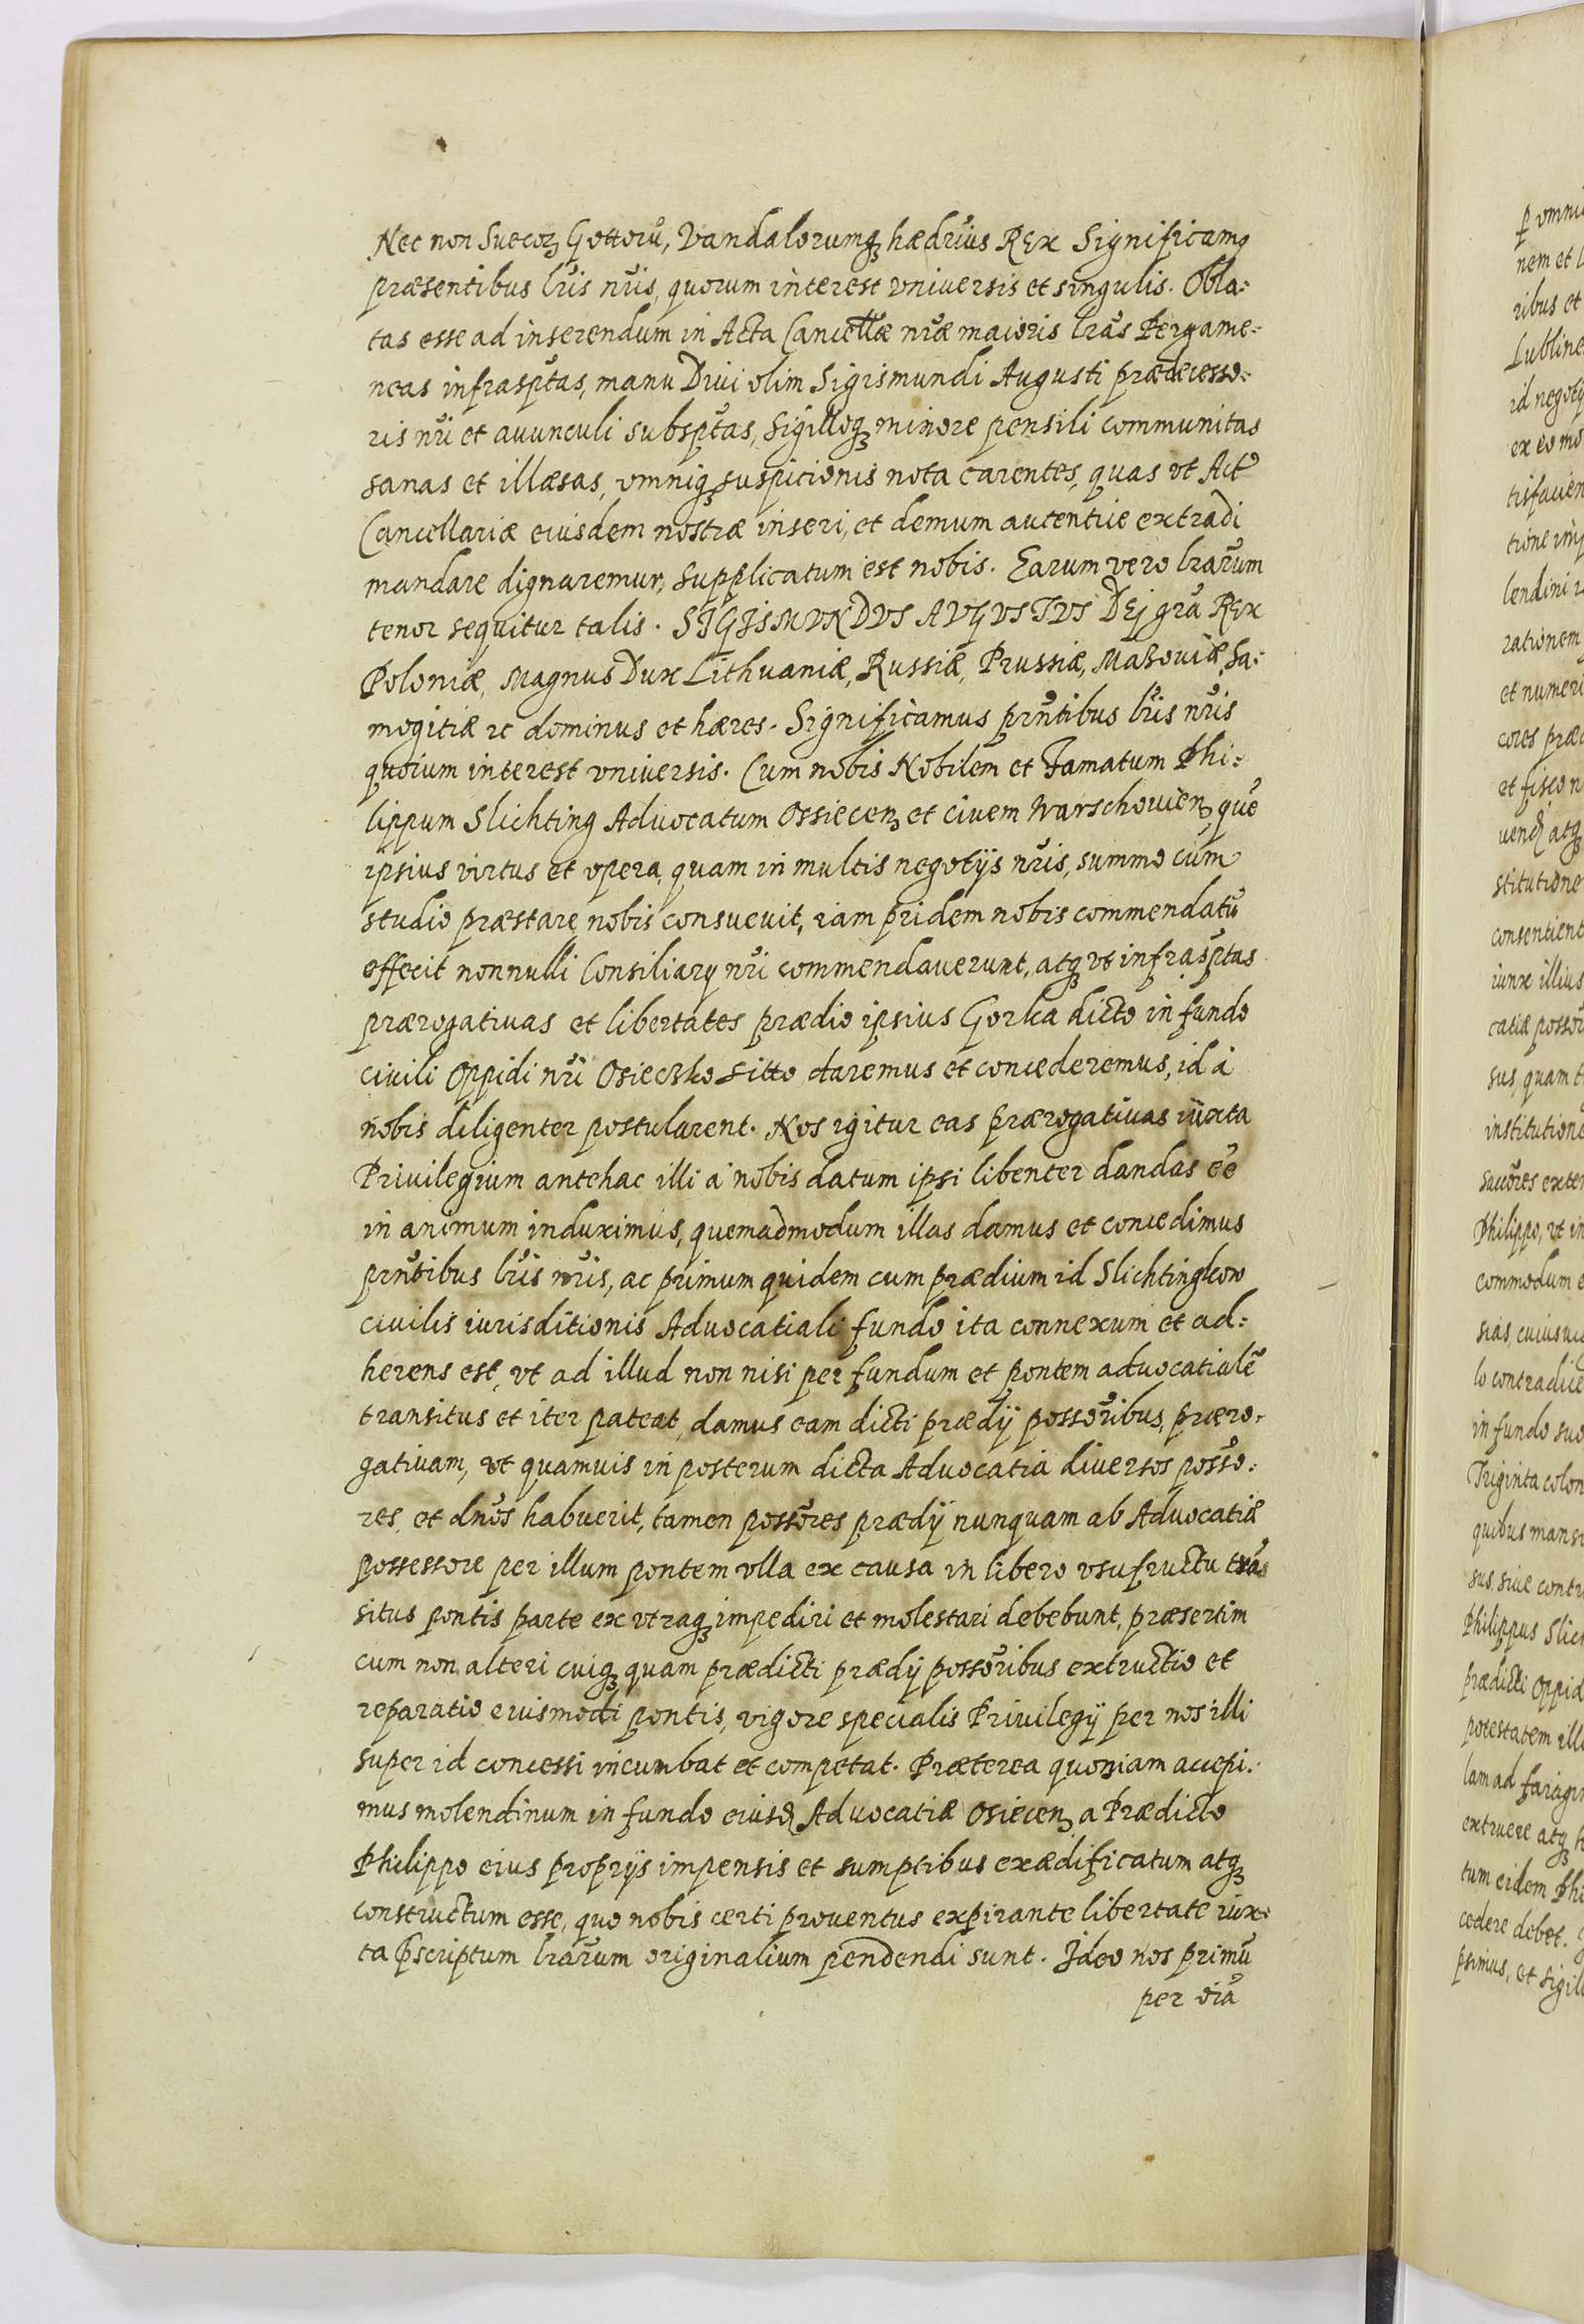 Nec non Suecoꝝ Gottorũ, Vandalorumqꝫ hædrius REx Significamꝰ
præsentibus lr̃is nr̃is, quorum interest vniuersis et singulis. Obla:
tas esse ad inserendum in Acta Cancellæ nr̃æ maioris lrãs Pergame:
neas infrasp̃tas, manu Diui olim Sigismundi Augusti prædecesso:
ris nr̃i et auunculi subsp̃tas, Sigilloqꝫ minore pensili communitas
sanas et illæsas, omniqꝫ suspicionis nota carentes, quas vt Act̃
Cancellariæ eiusdem nostræ inseri, et demum autentiie extradi
mandare dignaremur, supplicatum est nobis. Earum vero lrãrum
tenor sequitur talis. SIGISMVNDVS AVGVSTVS DEj gr̃a REx
Poloniæ, Magnus Dux Lithuaniæ, Russiæ, Prussiæ, Masouiæ, Sa:
mogitiæ ꝛc dominus et hæres. Significamus prñtibus lr̃is nr̃is
quorum interest vniuersis. Cum nobis Nobilem et Famatum Phi:
lippum Slichting Aduocatum Ossiecenꝫ et ciuem Warschouienꝫ, quẽ
ipsius virtus et opera, quam in multis negotijs nr̃is, summo cum
studio præstare nobis consueuit, iam pridem nobis commendatũ
effecit nonnulli Consiliarij nr̃i commendauerunt, atqꝫ vt infrasp̃tas
prærogatiuas et libertates prædio ipsius Gorka dicto in fundo
ciuili Oppidi nr̃i Osieczko sitto daremus et concederemus, id à
nobis diligenter postularent. Nos igitur eas prærogatiuas iuxta
Priuilegium antehac illi à nobis datum ipsi libenter dandas eẽ
in animum induximus, quemadmodum illas damus et concedimus
prñtibus lr̃is nr̃is, ac primum quidem cum prædium id Slichtingkow
ciuilis iurisditionis Aduocatiali fundo ita connexum et ad:
herens est, vt ad illud non nisi per fundum et pontem aduocatialẽ
transitus et iter pateat, damus eam dicti prædij possõribus, præro:
gatiuam, vt quamuis in posterum dicta Aduocatia diuersos posso:
res, et dnõs habuerit, tamen possõres prædij nunquam ab Aduocatiæ
possessore per illum pontem vlla ex causa in libero vsufructu trã:
situs pontis parte ex vtraqꝫ impediri et molestari debebunt, præsertim
cum non alteri cuiqꝫ quam prædicti prædij possõribus extructio et
reparatio eiusmodi pontis, vigore specialis Priuilegij per nos illi
super id concessi incumbat et competat. Præterea quoniam accepi:
mus molendinum in fundo eiusd̃ Aduocatiæ Osiecenꝫ a Prædicto
Philippo eius proprijs impensis et sumptibus exædificatum atqꝫ
constructum esse, quo nobis certi prouentus expirante libertate iux:
ta ꝓscriptum lrãrum originalium pendendi sunt. Ideo nos primũ
per oĩa
ꝑ omni
nem et l
ribus et
Lubline
id negotij
ex eo mo
tisfacien
tione imp
lendini
rationem
et numeri
cores præd
et fisco n
uend̃ atqꝫ
stitutione
consentient
iunx illius
catiæ possõr
sus, quam
institutione
sauõres exter
Philippo, vt in
commodum e
sias, cuiusui
lo contradice
in fundo suo
Triginta colon
quibus mansi
sus, siue contr
Philippus Slich
prædicti Oppid
potestatem ill
lam ad farragin
extruere atqꝫ
tum eidem Phi
cedere debet.
psimus, et sigill